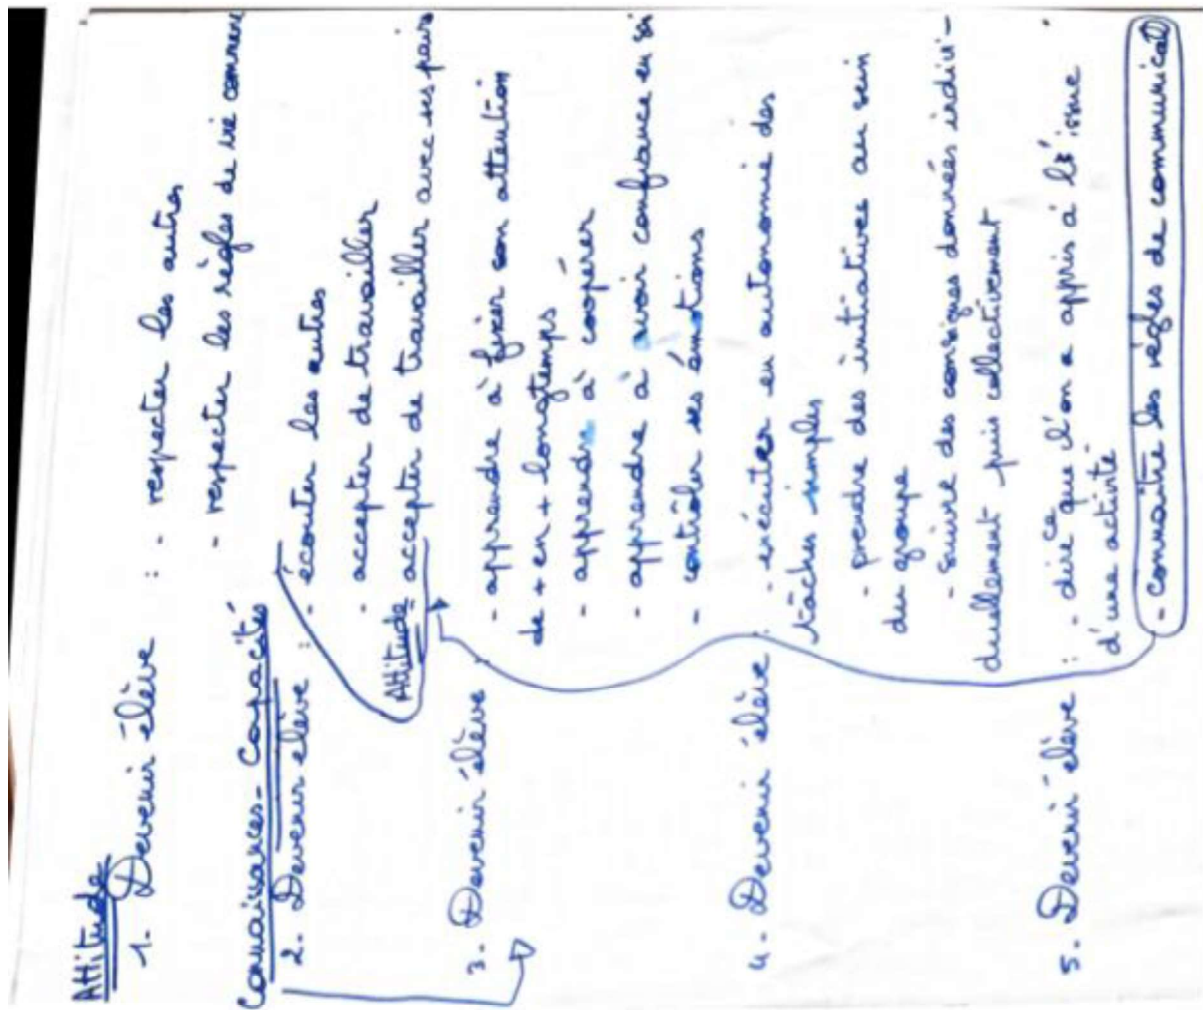 Attitude
1. Devenir élève : - respecter les autres
- respecter les règles de vie commune
Connaissances - Capacités
2. Devenir elève : - écouter les autres
- accepter de travailler
Attitude - accepter de travailler avec ses pairs
3. Devenir élève : - apprendre à fixer son attention
de + en + longtemps
- apprendre à coopérer
- apprendre à avoir confiance en soi
- contrôler ses émotions
4. Devenir élève : - exécuter en autonomie des
tâches simples
- prendre des initiatives au sein
du groupe
- suivre des consignes données indivi-
duellement puis collectivement
5. Devenir élève : - dire ce que l'on a appris à l'issue
d'une activité
- connaître les règles de communicat°